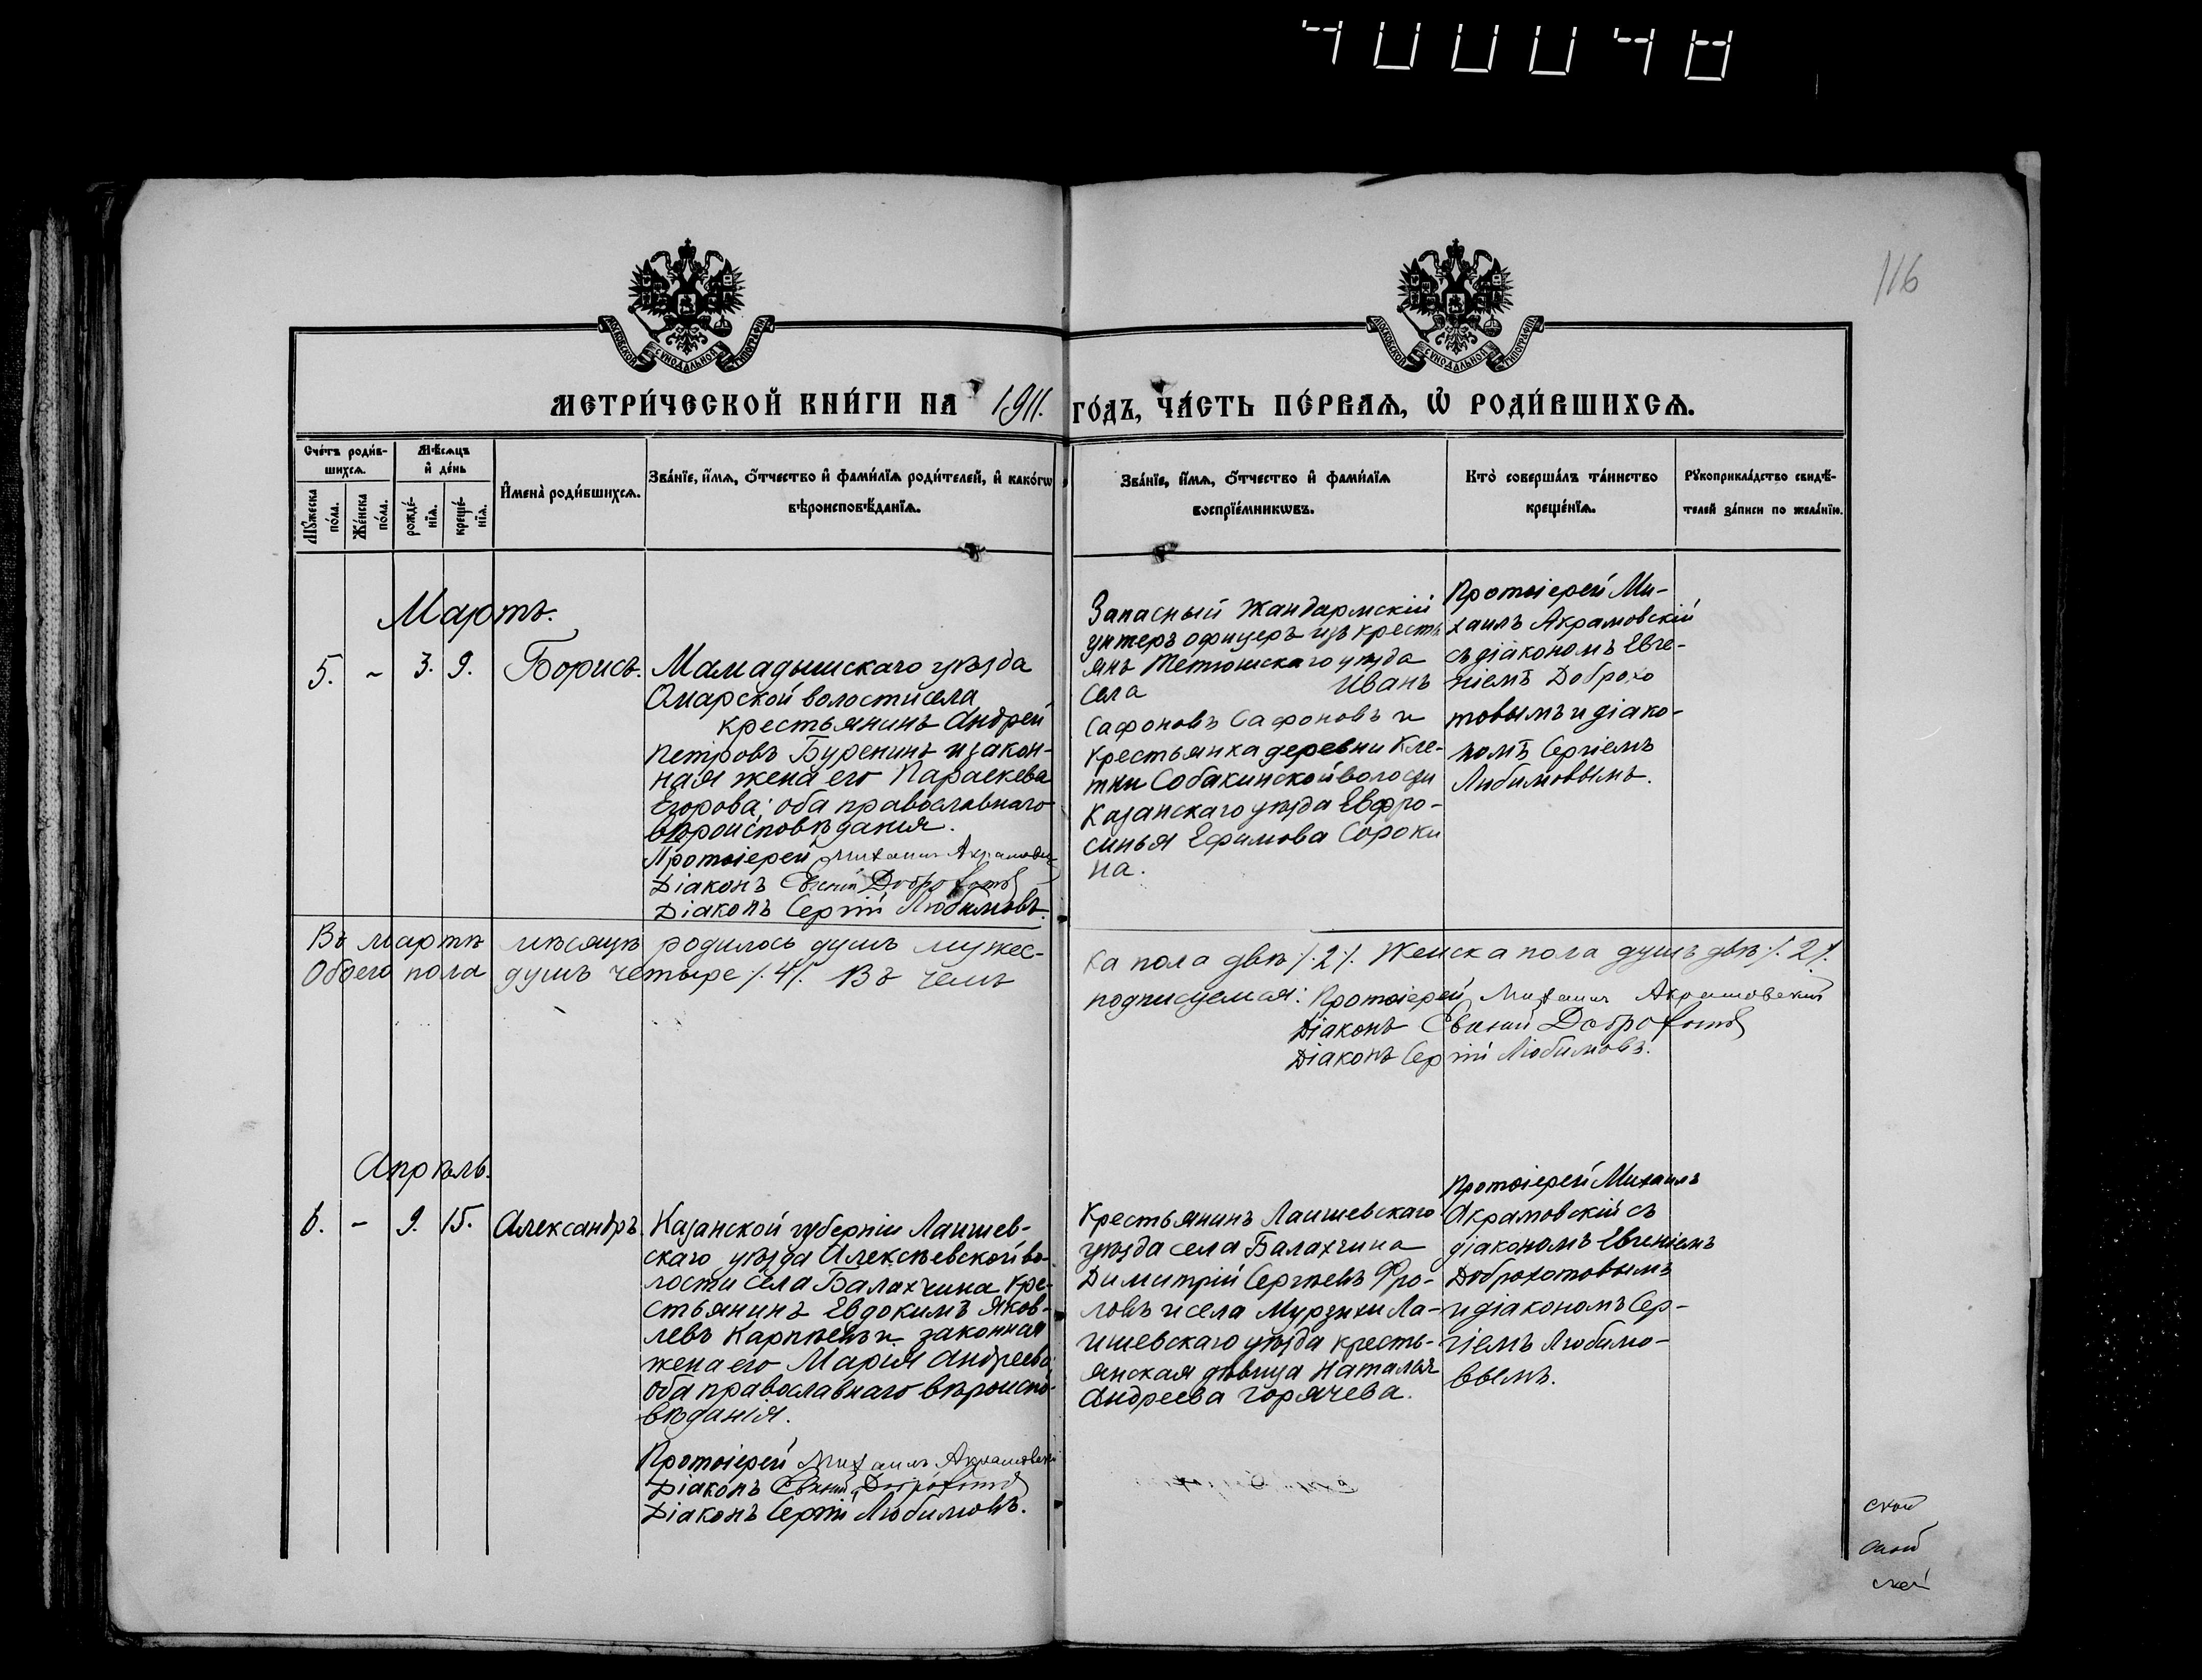 400048
116
МОСКОВСКОЙ СѴНОДАЛЬНОЙ ТИПОГРАФІИ
МОСКОВСКОЙ СѴНОДАЛЬНОЙ ТИПОГРАФІИ
МЕТРИ́ЧЕСКОЙ КНИ́ГИ НА 1911. ГО́ДЪ, ЧА́СТЬ ПЕ́РВАѦ, Ѡ҆ РОДИ́ВШИХСѦ.
Сче́тъ роди́в-
шихсѧ.
Мꙋ́жеска по́ла.
Же́нска по́ла.
Мѣ́сѧцъ
и҆ де́нь
рожде́-
нїѧ.
креще́-
нїѧ.
И҆мена̀ роди́вшихсѧ.
Зва́нїе, и҆́мѧ, ѻ҆́тчество и҆ фами́лїѧ роди́телей, и҆ како́гѡ
вѣроисповѣ́данїѧ.
Зва́нїе, и҆́мѧ, ѻ҆́тчество и҆ фами́лїѧ
воспрїе́мникѡвъ.
Кто̀ соверша́лъ та́инство
креще́нїѧ.
Рꙋкоприкла́дство свидѣ́-
телей за́писи по жела́нїю.
Мартъ.
5. - 3. 9. Борисъ.
Мамадышскаго уѣзда
Омарской волости села
крестьянинъ Андрей
Петровъ Буренинъ и закон-
ная жена его Параскева
Егорова; оба православнаго
вѣроисповѣданія.
Протоіерей Михаилъ Акрамовскій
Діаконъ Евгеній Доброхотовъ
Діаконъ Сергій Любимовъ.
Запасный жандармскій
унтеръ офицеръ изъ кресть
янъ Тетюшскаго уѣзда
села Иванъ
Сафоновъ Сафоновъ и
крестьянка деревни Кле-
тни Собакинской волости
Казанскаго уѣзда Евфро-
синья Ефимова Сороки
на.
Протоіерей Ми-
хаилъ Акрамовскій
съ діакономъ Евге-
ніемъ Доброхо
товымъ и діако-
номъ Сергіемъ
Любимовымъ.
Въ мартѣ мѣсяцѣ родилось душъ мужес-
ка пола двѣ /.2/. Женска пола душъ двѣ /.2/.
Обоего пола душъ четыре /.4/. Въ чемъ
подписуемся: Протоіерей Михаилъ Акрамовскій
Діаконъ Евгеній Доброхотовъ
Діаконъ Сергій Любимовъ.
Апрѣль.
6. - 9. 15. Александръ.
Казанской губерніи Лаишев-
скаго уѣзда Алексѣевской во-
лости села Балахчина кре-
стьянинъ Евдокимъ Яков-
левъ Карпѣевъ и законная
жена его Марія Андреева;
оба православнаго вѣроиспо-
вѣданія.
Протоіерей Михаилъ Акрамовскій
Діаконъ Евгеній Доброхотовъ
Діаконъ Сергій Любимовъ.
Крестьянинъ Лаишевскаго
уѣзда села Балахчина
Димитрій Сергѣевъ Фро-
ловъ и села Мурзихи Ла-
ишевскаго уѣзда кресть-
янская дѣвица Наталья
Андреева Горячева.
Протоіерей Михаилъ
Акрамовскій съ
діакономъ Евгеніемъ
Доброхотовымъ
и діакономъ Сер-
гіемъ Любимо-
вымъ.
ской